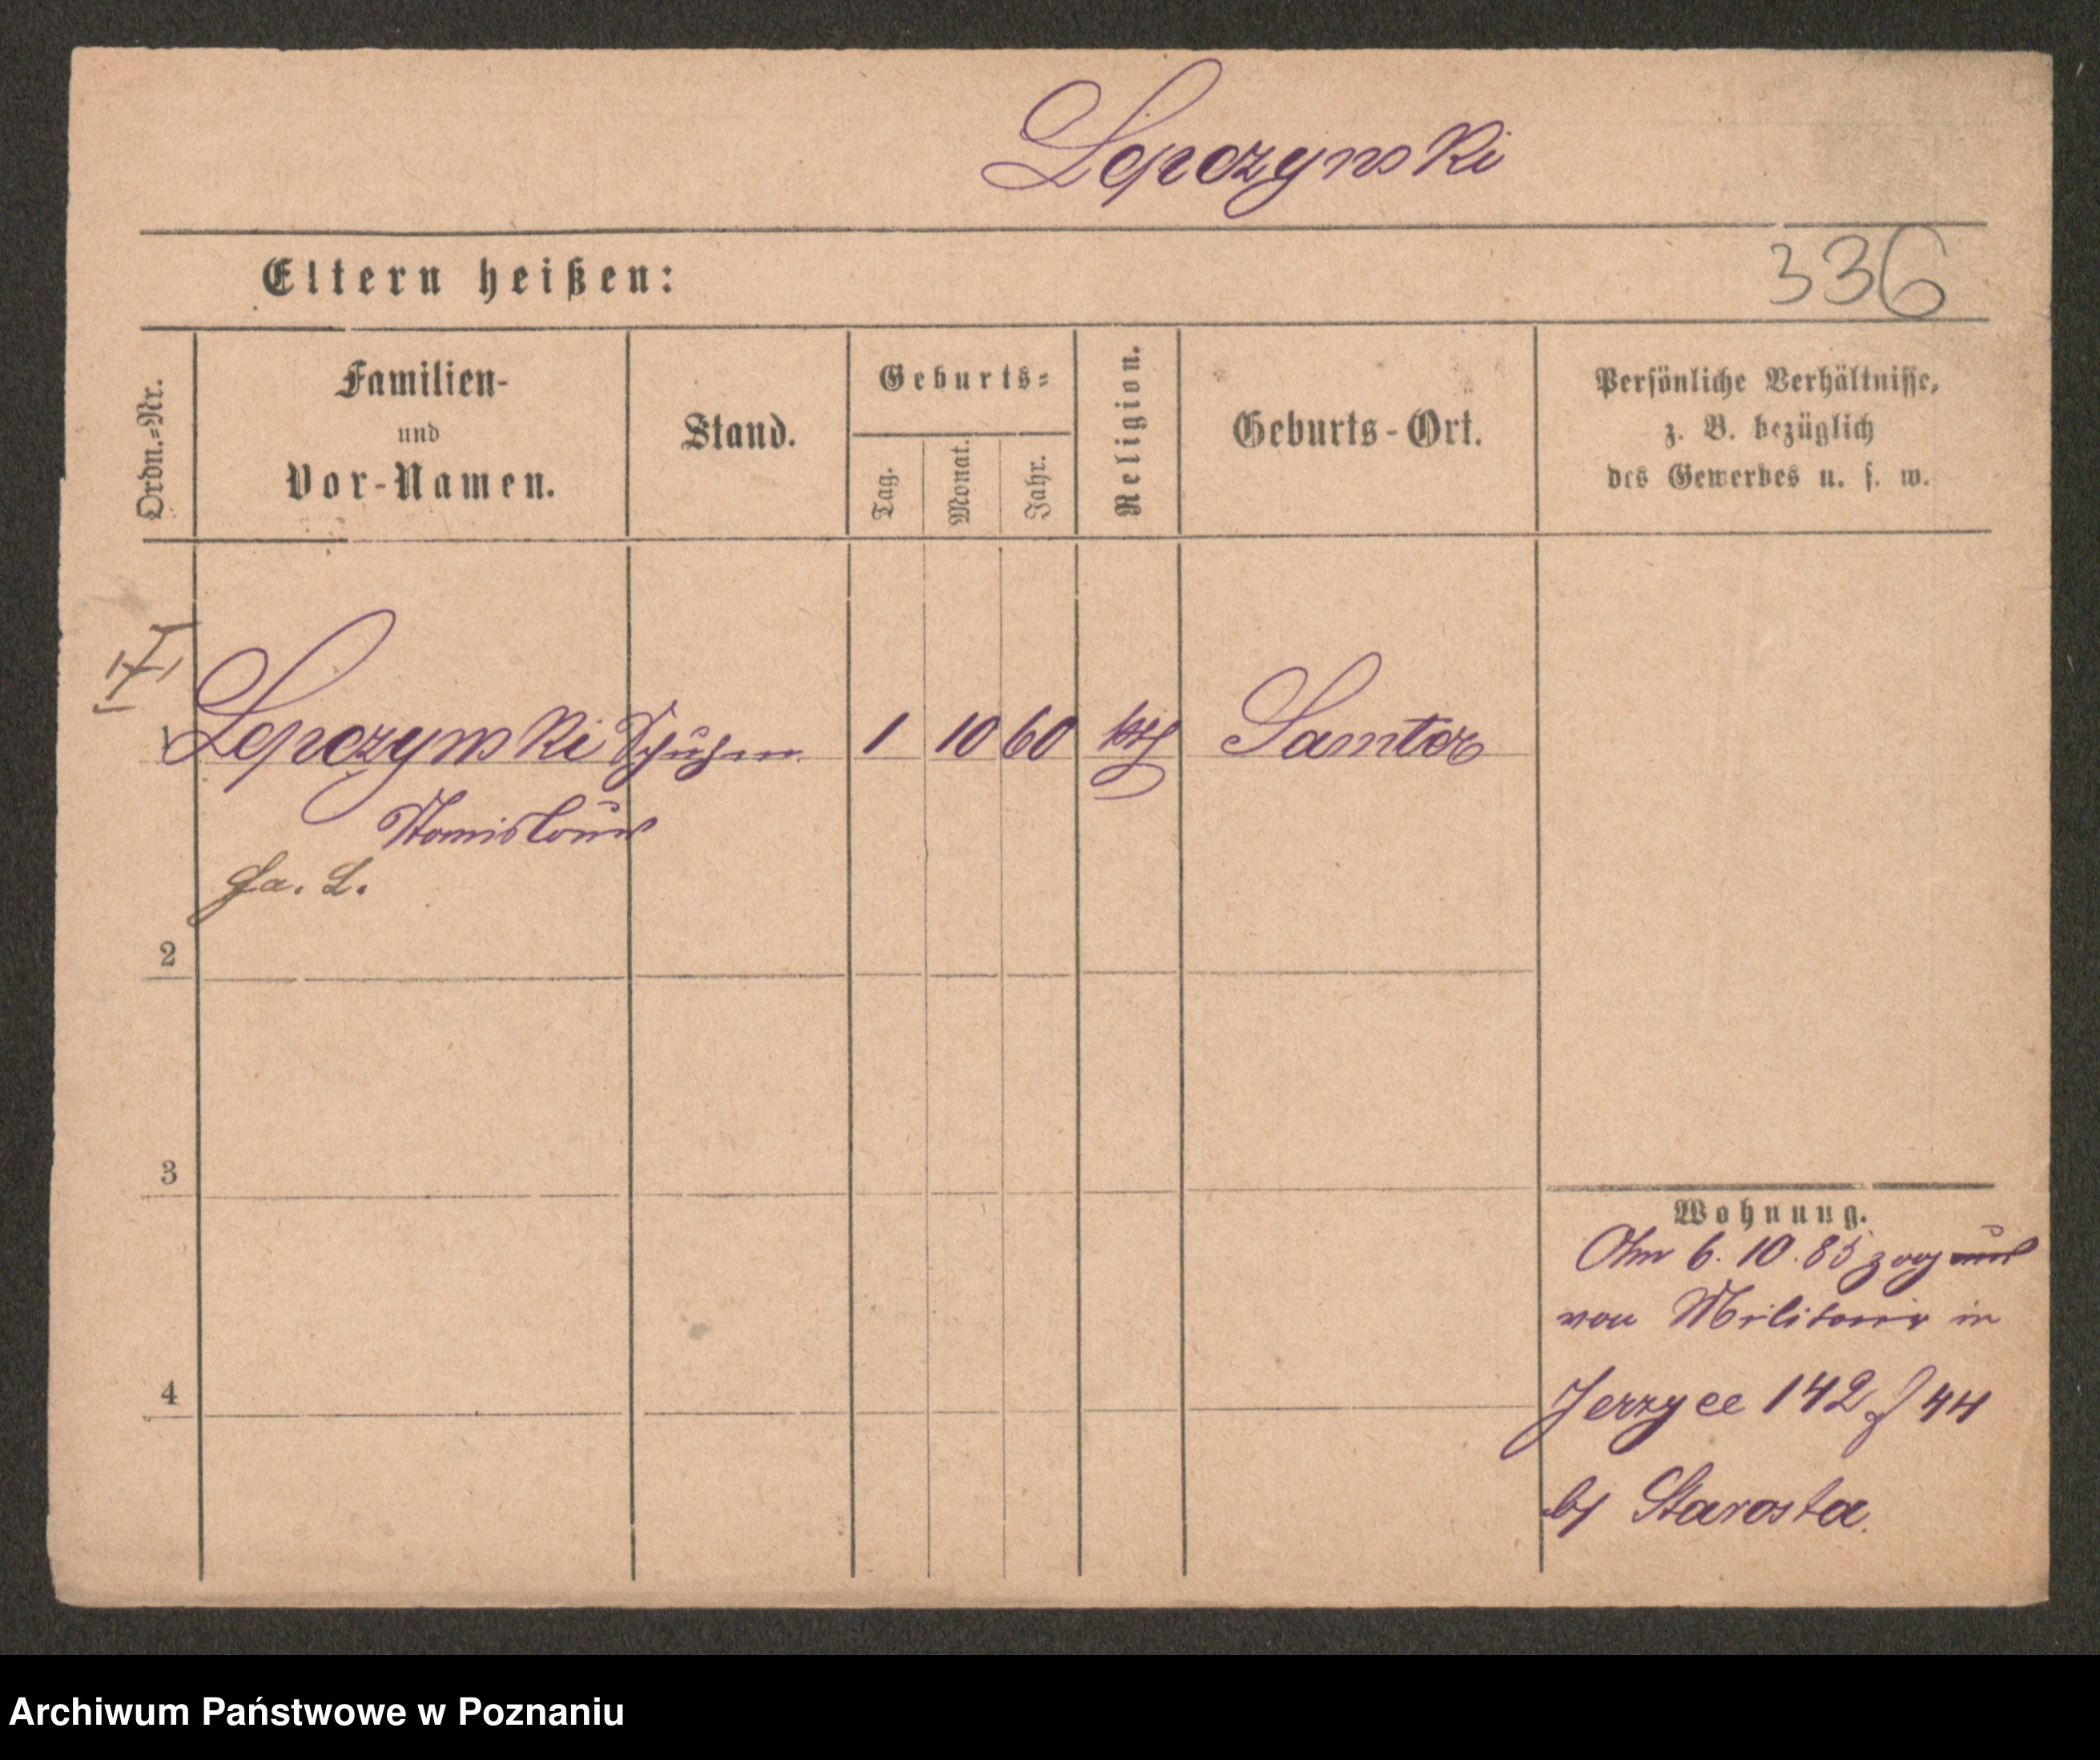 Lepczynski
Eltern heißen:
336
Ordn.=Nr.
Familien-
und
Vor-Namen.
Stand.
Geburts=
Tag.
Monat.
Jahr.
Religion.
Geburts-Ort.
Persönliche Verhältnisse,
z. B. bezüglich
des Gewerbes u. s. w.
1 Lepczynski Schuhm. 1 10 60 kth Samter
Stanislaus
fa. L.
2
3
4
Wohnung.
Am 6. 10. 85 zog
von Militair in
Jerzyce 142 f 44
b/ Starosta.
Archiwum Państwowe w Poznaniu